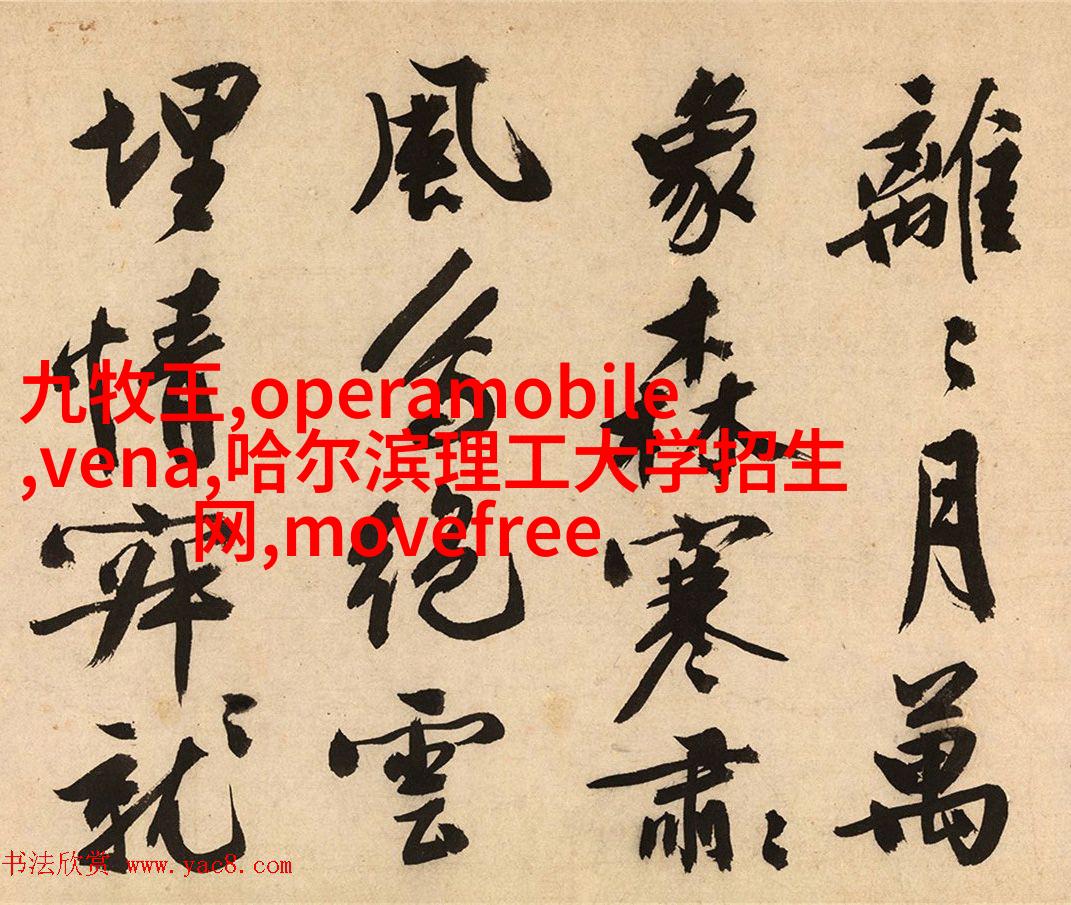 離〻月萬
象森寒肅〻
風絶雲
埋情就
九牧王,operamobile
,vena,哈尔滨理工大学招生
网,movefree
书法欣赏 www.yac8.com